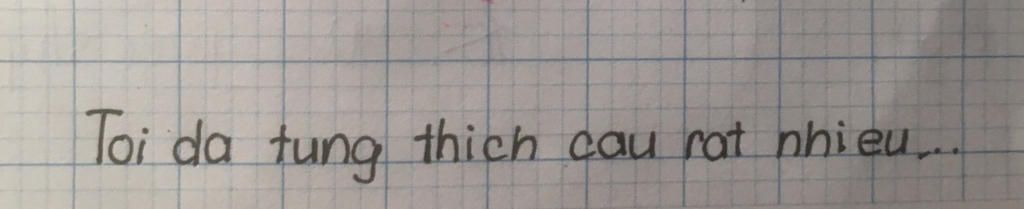 Toi da tung thich cau rat nhieu...